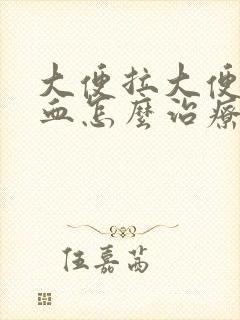 大便拉大便
血怎麼治療
伍嘉茜